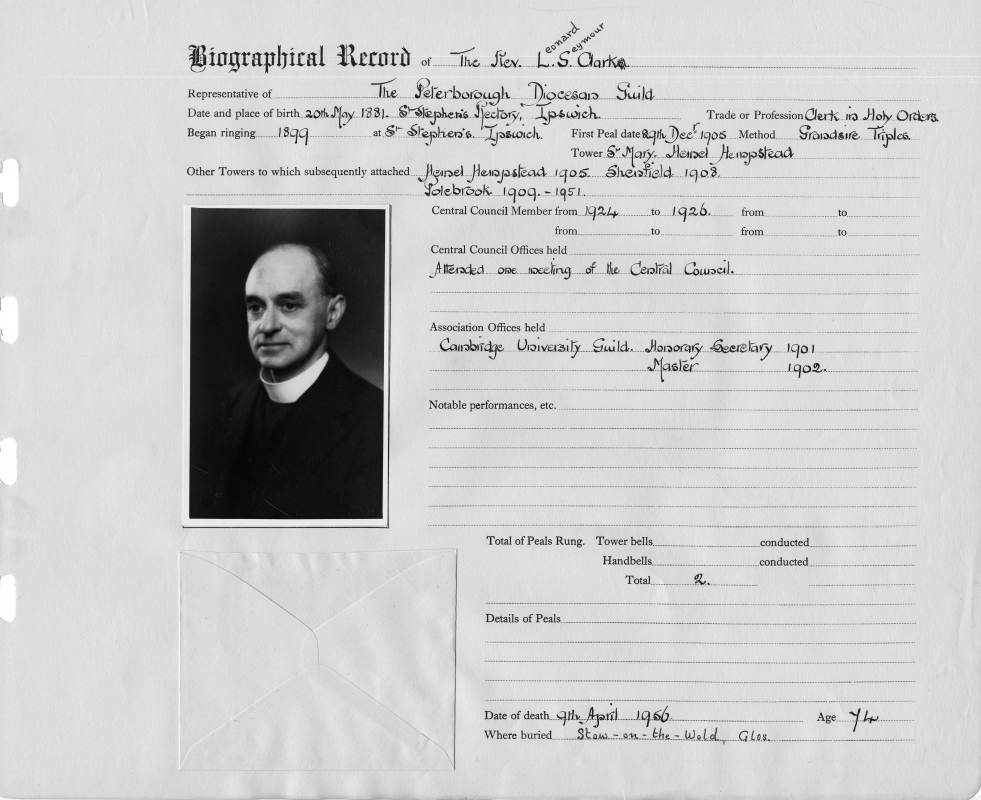 eonard eymour
Biographical Record of The Rev. L. S. Clarke
Representative of The Peterborough Diocesan Guild
Date and place of birth 20th May 1881. St Stephen's Rectory, Ipswich. Trade or Profession Clerk in Holy Orders.
Began ringing 1899 at St Stephen's. Ipswich. First Peal date 29th Decr 1905 Method Grandsire Triples.
Tower St Mary. Hemel Hempstead
Other Towers to which subsequently attached Hemel Hempstead 1905. Shenfield 1908.
Polebrook 1909.-1951.
Central Council Member from 1924 to 1926. from to
from to from to
Central Council Offices held
Attended one meeting of the Central Council.
Association Offices held
Cambridge University Guild. Honorary Secretary 1901
Master 1902.
Notable performances, etc.
Total of Peals Rung. Tower bells conducted
Handbells conducted
Total 2.
Details of Peals
Date of death 9th April 1956. Age 74
Where buried Stow-on-the-Wold, Glos.